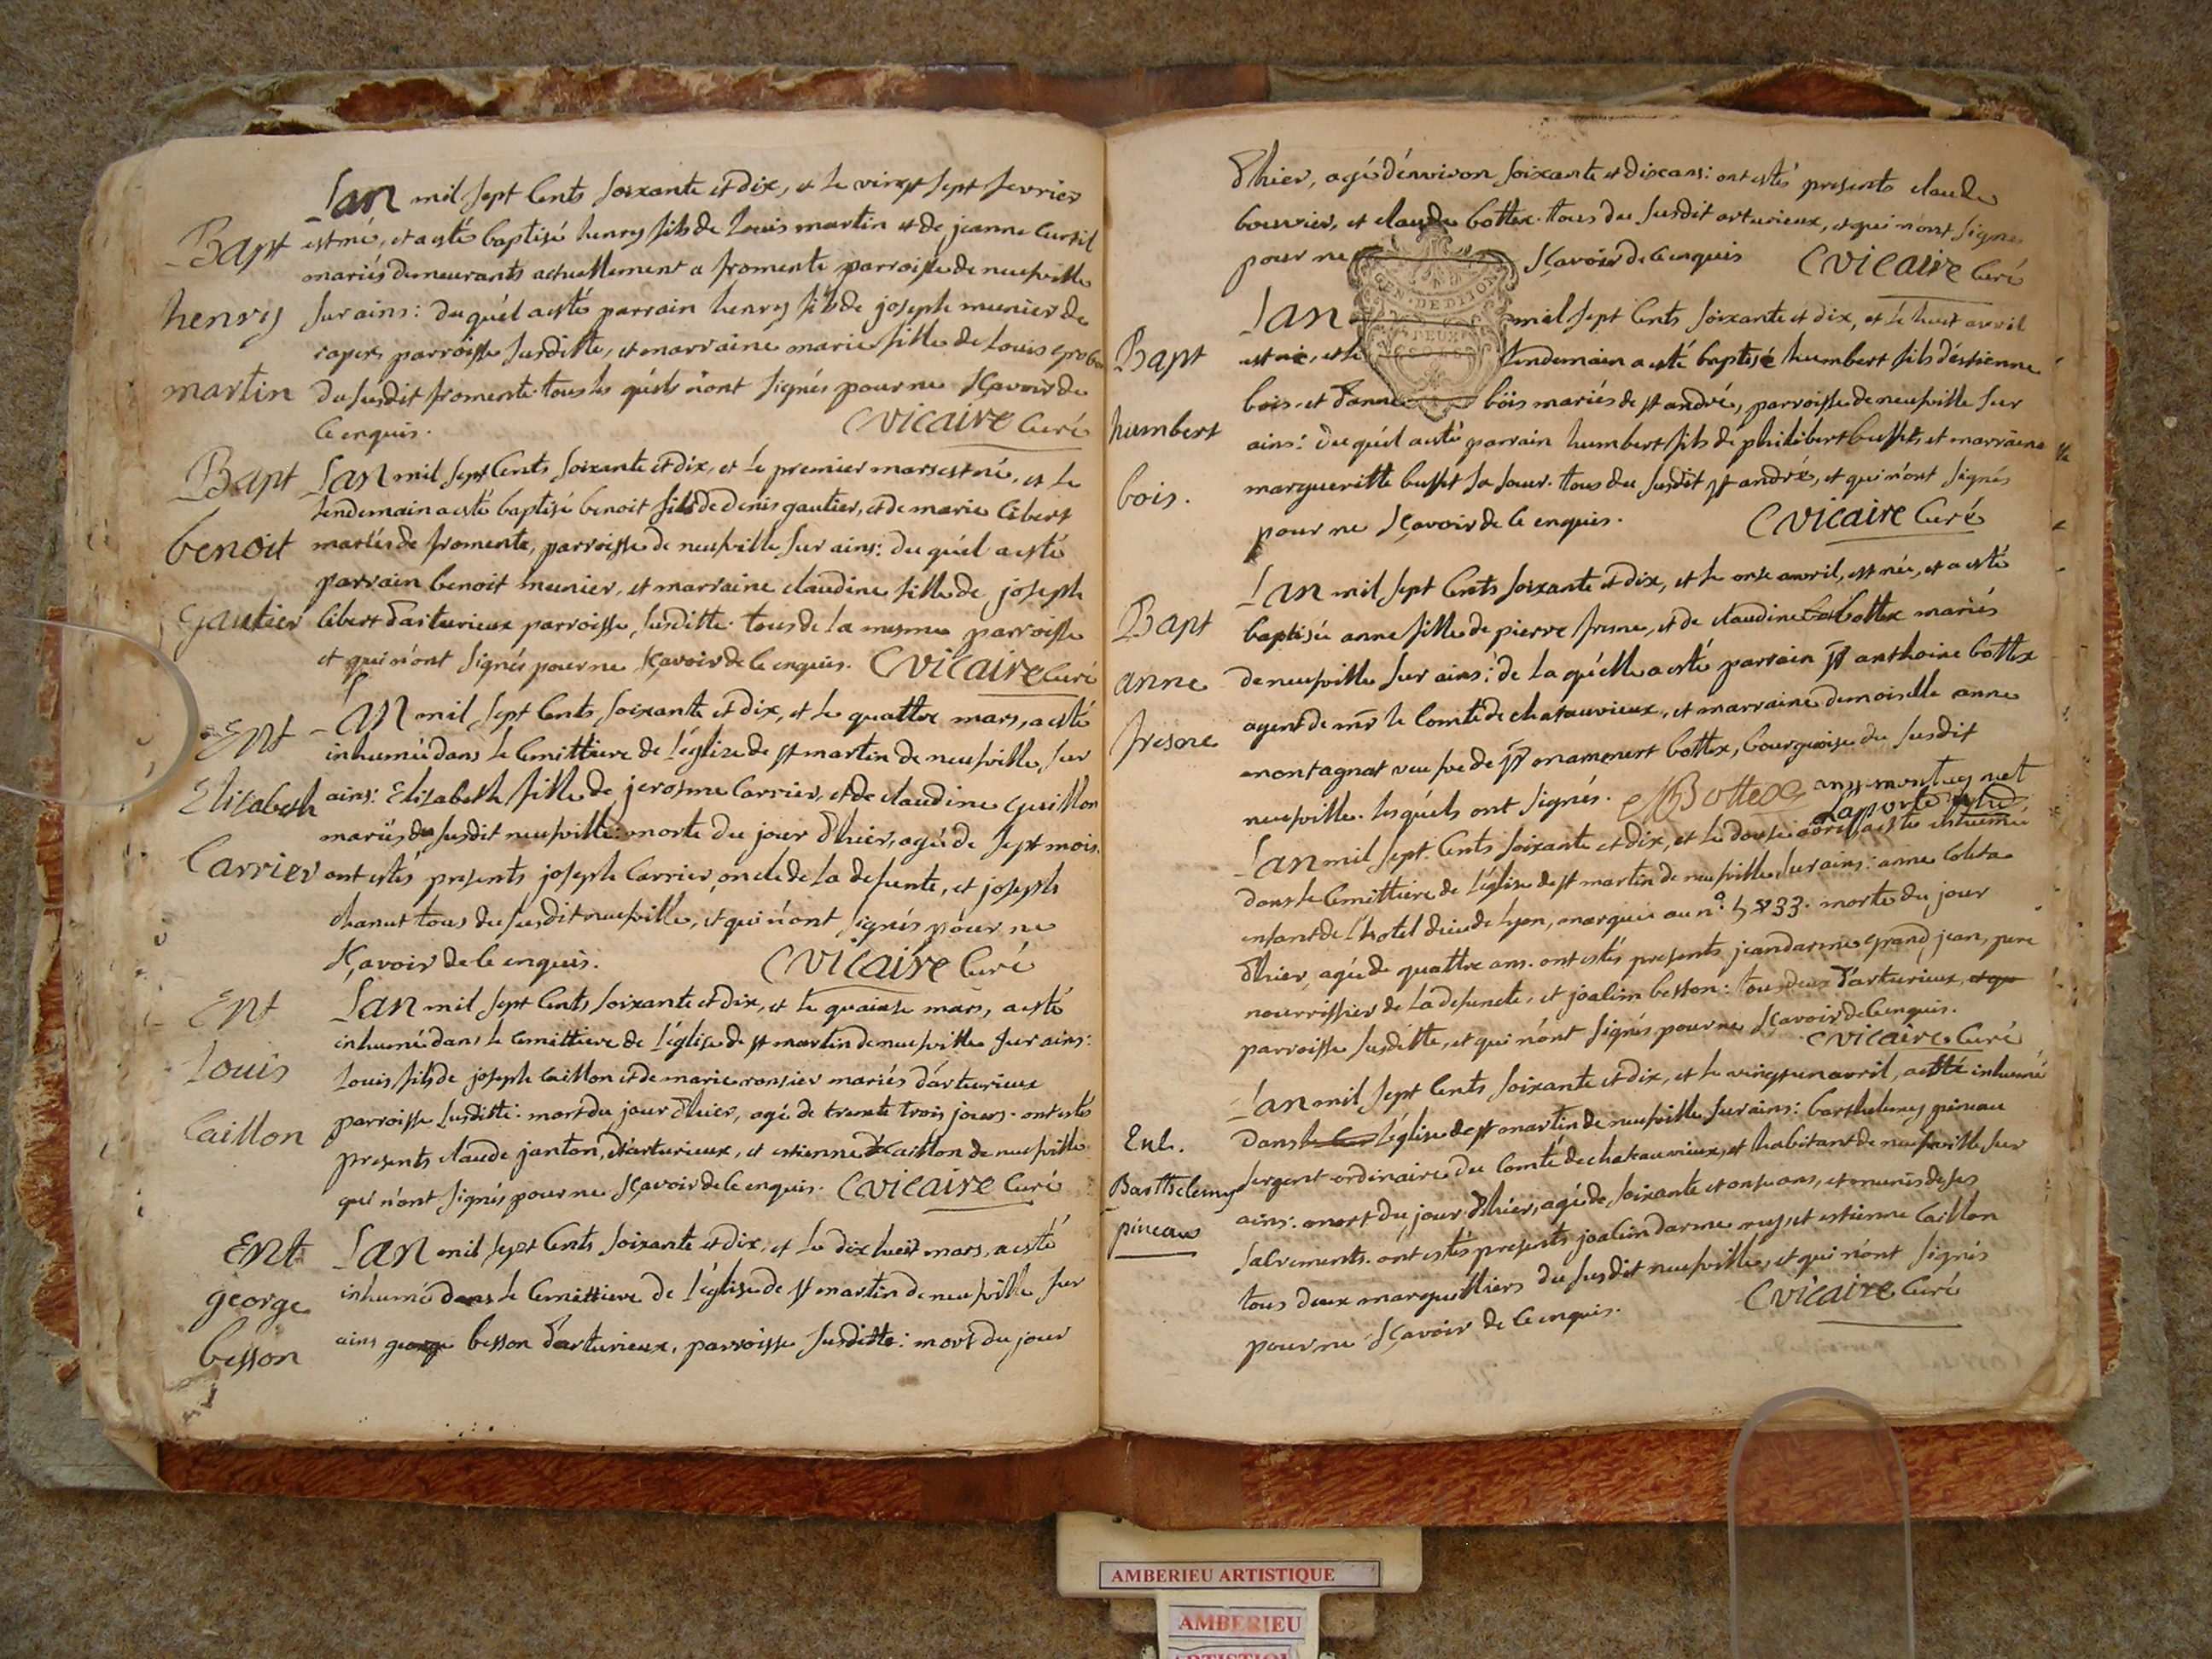 Bapt
henry
martin
Lan mil sept Cents soixante et dix, et le vingt sept fevrier
est né, et a esté baptisé henry fils de Louis martin et de jeanne Curtil
mariés demeurants actuellement a fromente parroisse de neufville
sur ains: du quél a esté parrain henry fils de joseph munier de
parroisse susditte, et marraine marie fille de Louis
du susdit fromente. tous les quéls n'ont signés pour ne sçavoir de
Ce enquis. CVicaire Curé
Bapt
benoit
gautier
Lan mil sept Cents soixante et dix, et le premier mars est né, et le
lendemain a esté baptisé benoit fils de denis gautier, et de marie Cibert
mariés de fromente, parroisse de neufville sur ains: du quél a esté
parrain benoit munier, et marraine claudine fille de joseph
Cibert d'arturieux parroisse susditte. tous de la mesme parroisse
et qui n'ont signés pour ne sçavoir de Ce enquis. CVicaire Curé
Ent
Elizabeth
Carrier
Lan mil sept Cents soixante et dix, et le quattre mars, a esté
inhumée dans le Cemittiere de l'églize de st martin de neufville, sur
ains: Elizabeth fille de jerosme Carrier, et de claudine guillon
mariés du susdit neufville: morte du jour d'hier, agée de sept mois.
ont estés presents joseph Carrier, oncle de la defunte, et joseph
chanut tous du susdit neufville, et qui n'ont signés pour ne
sçavoir de Ce enquis. CVicaire Curé
Ent
Louis
Caillon
Lan mil sept Cents soixante et dix, et le quainse mars, a esté
inhumé dans le Cemittiere de l'églize de st martin de neufville sur ains:
Louis fils de joseph Caillon et de marie ronsier mariés d'arturieux
parroisse susditte: mort du jour d'hier, agé de trente trois jours. ont estés
presents claude janton, d'arturieux, et estienne Caillon de neufville
qui n'ont signés pour ne sçavoir de Ce enquis. CVicaire Curé
Ent
george
besson
Lan mil sept Cents soixante et dix, et le dix huit mars, a esté
inhumé dans le Cemittiere de l'églize de st martin de neufville sur
ains george besson d'arturieux, parroisse susditte: mort du jour
d'hier, agé d'environ soixante et dix ans: ont estés presents claude
bouvier, et claude bottex. tous du susdit arturieux, et qui n'ont signés
pour ne sçavoir de Ce enquis CVicaire Curé
GEN. DE DIJON
DEUX
Bapt
humbert
bois.
Lan mil sept Cents soixante et dix, et le huit avril
est né, et le lendemain a esté baptisé humbert fils d'éstienne
bois, et d'anne bois mariés de st andré, parroisse de neufville sur
ains: du quél a esté parrain humbert fils de philibert buffet, et marraine
margueritte buffet sa sœur. tous du susdit st andré, et qui n'ont signés
pour ne sçavoir de Ce enquis. CVicaire Curé
Bapt
anne
fresne
Lan mil sept Cents soixante et dix, et le onse avvril, est née, et a esté
baptisée anne fille de pierre fresne, et de claudine bottex mariés
de neufville sur ains: de la quélle a esté parrain sr anthoine bottex
agent de mr le Comte de chatauvieux, et marraine demoiselle anne
montagnat veufve de sr mammert bottex, bourgeoise du susdit
neufville. lesquéls ont signés. Bottex
Lan mil sept Cents soixante et dix, et le douse avril a esté inhumée
dans le Cemittiere de l'églize de st martin de neufville sur ains: anne
enfant de l'hotel dieu de Lyon, marquée au n°. morte du jour
d'hier, agée de quattre ans. ont estés presents jean darme grand jean, pere
nourrissier de la defuncte, et joalim besson: tous deux d'arturieux,
parroisse susditte, et qui n'ont signés pour ne sçavoir de Ce enquis.
CVicaire Curé
Ent.
Barthelemy
pineau
Lan mil sept Cents soixante et dix, et le vingt un avril, a esté inhumé
dans l'églize de st martin de neufville sur ains: barthelemy pineau
sergent ordinaire du Comté de chatauvieux, et habitant de neufville sur
ains: mort du jour d'hiér, agé de soixante et onse ans, et munis de ses
sacrements. ont estés presents joalim darme ruf, et estienne Caillon
tous deux marguilliers du susdit neufville, et qui n'ont signés
pour ne sçavoir de Ce enquis. CVicaire Curé
AMBERIEU ARTISTIQUE
AMBERIEU
ARTISTIQUE